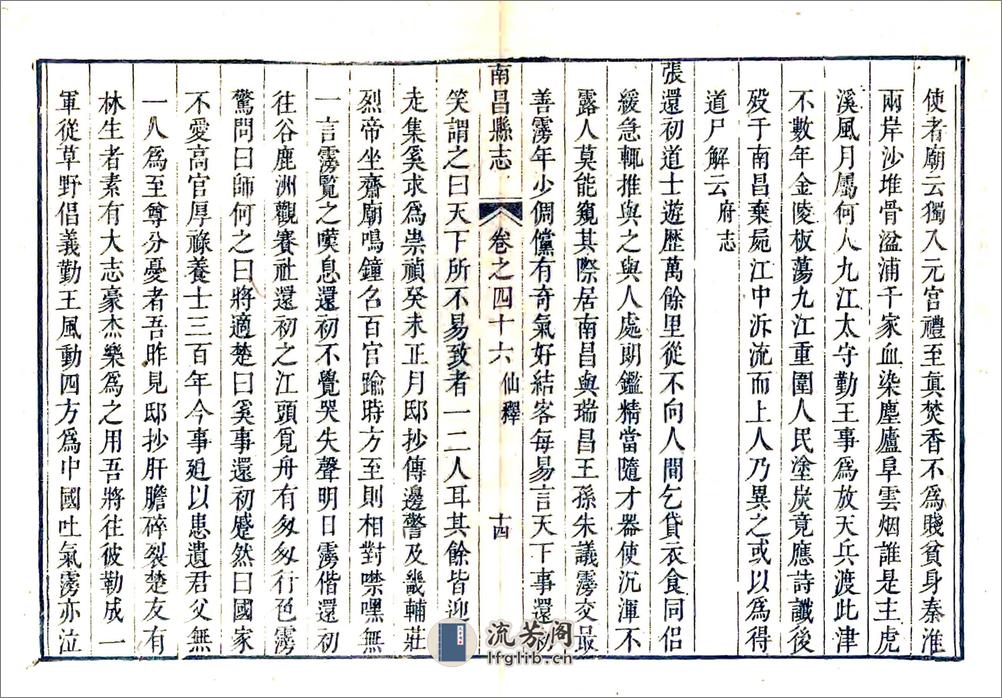 使者廟云獨入元宮禮至眞焚香不爲賤貧身秦淮
兩岸沙堆骨湓浦千家血染塵廬阜雲烟誰是主虎
溪風月屬何人九江太守勤王事爲放天兵渡此津
不數年金陵板蕩九江重圍人民塗炭竟應詩讖後
歿于南昌棄屍江中泝流而上人乃異之或以爲得
道尸解云府志
張還初道士遊歷萬餘里從不向人間乞貸衣食同侶
緩急輒推與之與人處朗鑑精當隨才器使沉渾不
露人莫能窺其際居南昌與瑞昌王孫朱議霶交最
善霶年少倜儻有奇氣好結客每易言天下事還初
南昌縣志 卷之四十六 仙釋 十四
笑謂之曰天下所不易致者一二人耳其餘皆迎
走集奚求爲崇禎癸未正月邸抄傳邊警及畿輔莊
烈帝坐齋廟鳴鐘名百官踰時方至則相對噤嘿無
一言霶覽之嘆息還初不覺哭失聲明日霶偕還初
往谷鹿洲觀賽社還初之江頭覓舟有匆匆行色霶
驚問曰師何之曰將適楚曰奚事還初蹙然曰國家
不愛高官厚祿養士三百年今事廹以患遺君父無
一人爲至尊分憂者吾昨見邸抄肝膽碎裂楚友有
林生者素有大志豪杰樂爲之用吾將往彼勒成一
軍從草野倡義勤王風動四方爲中國吐氣霶亦泣
流芳阁
lfglib.cn